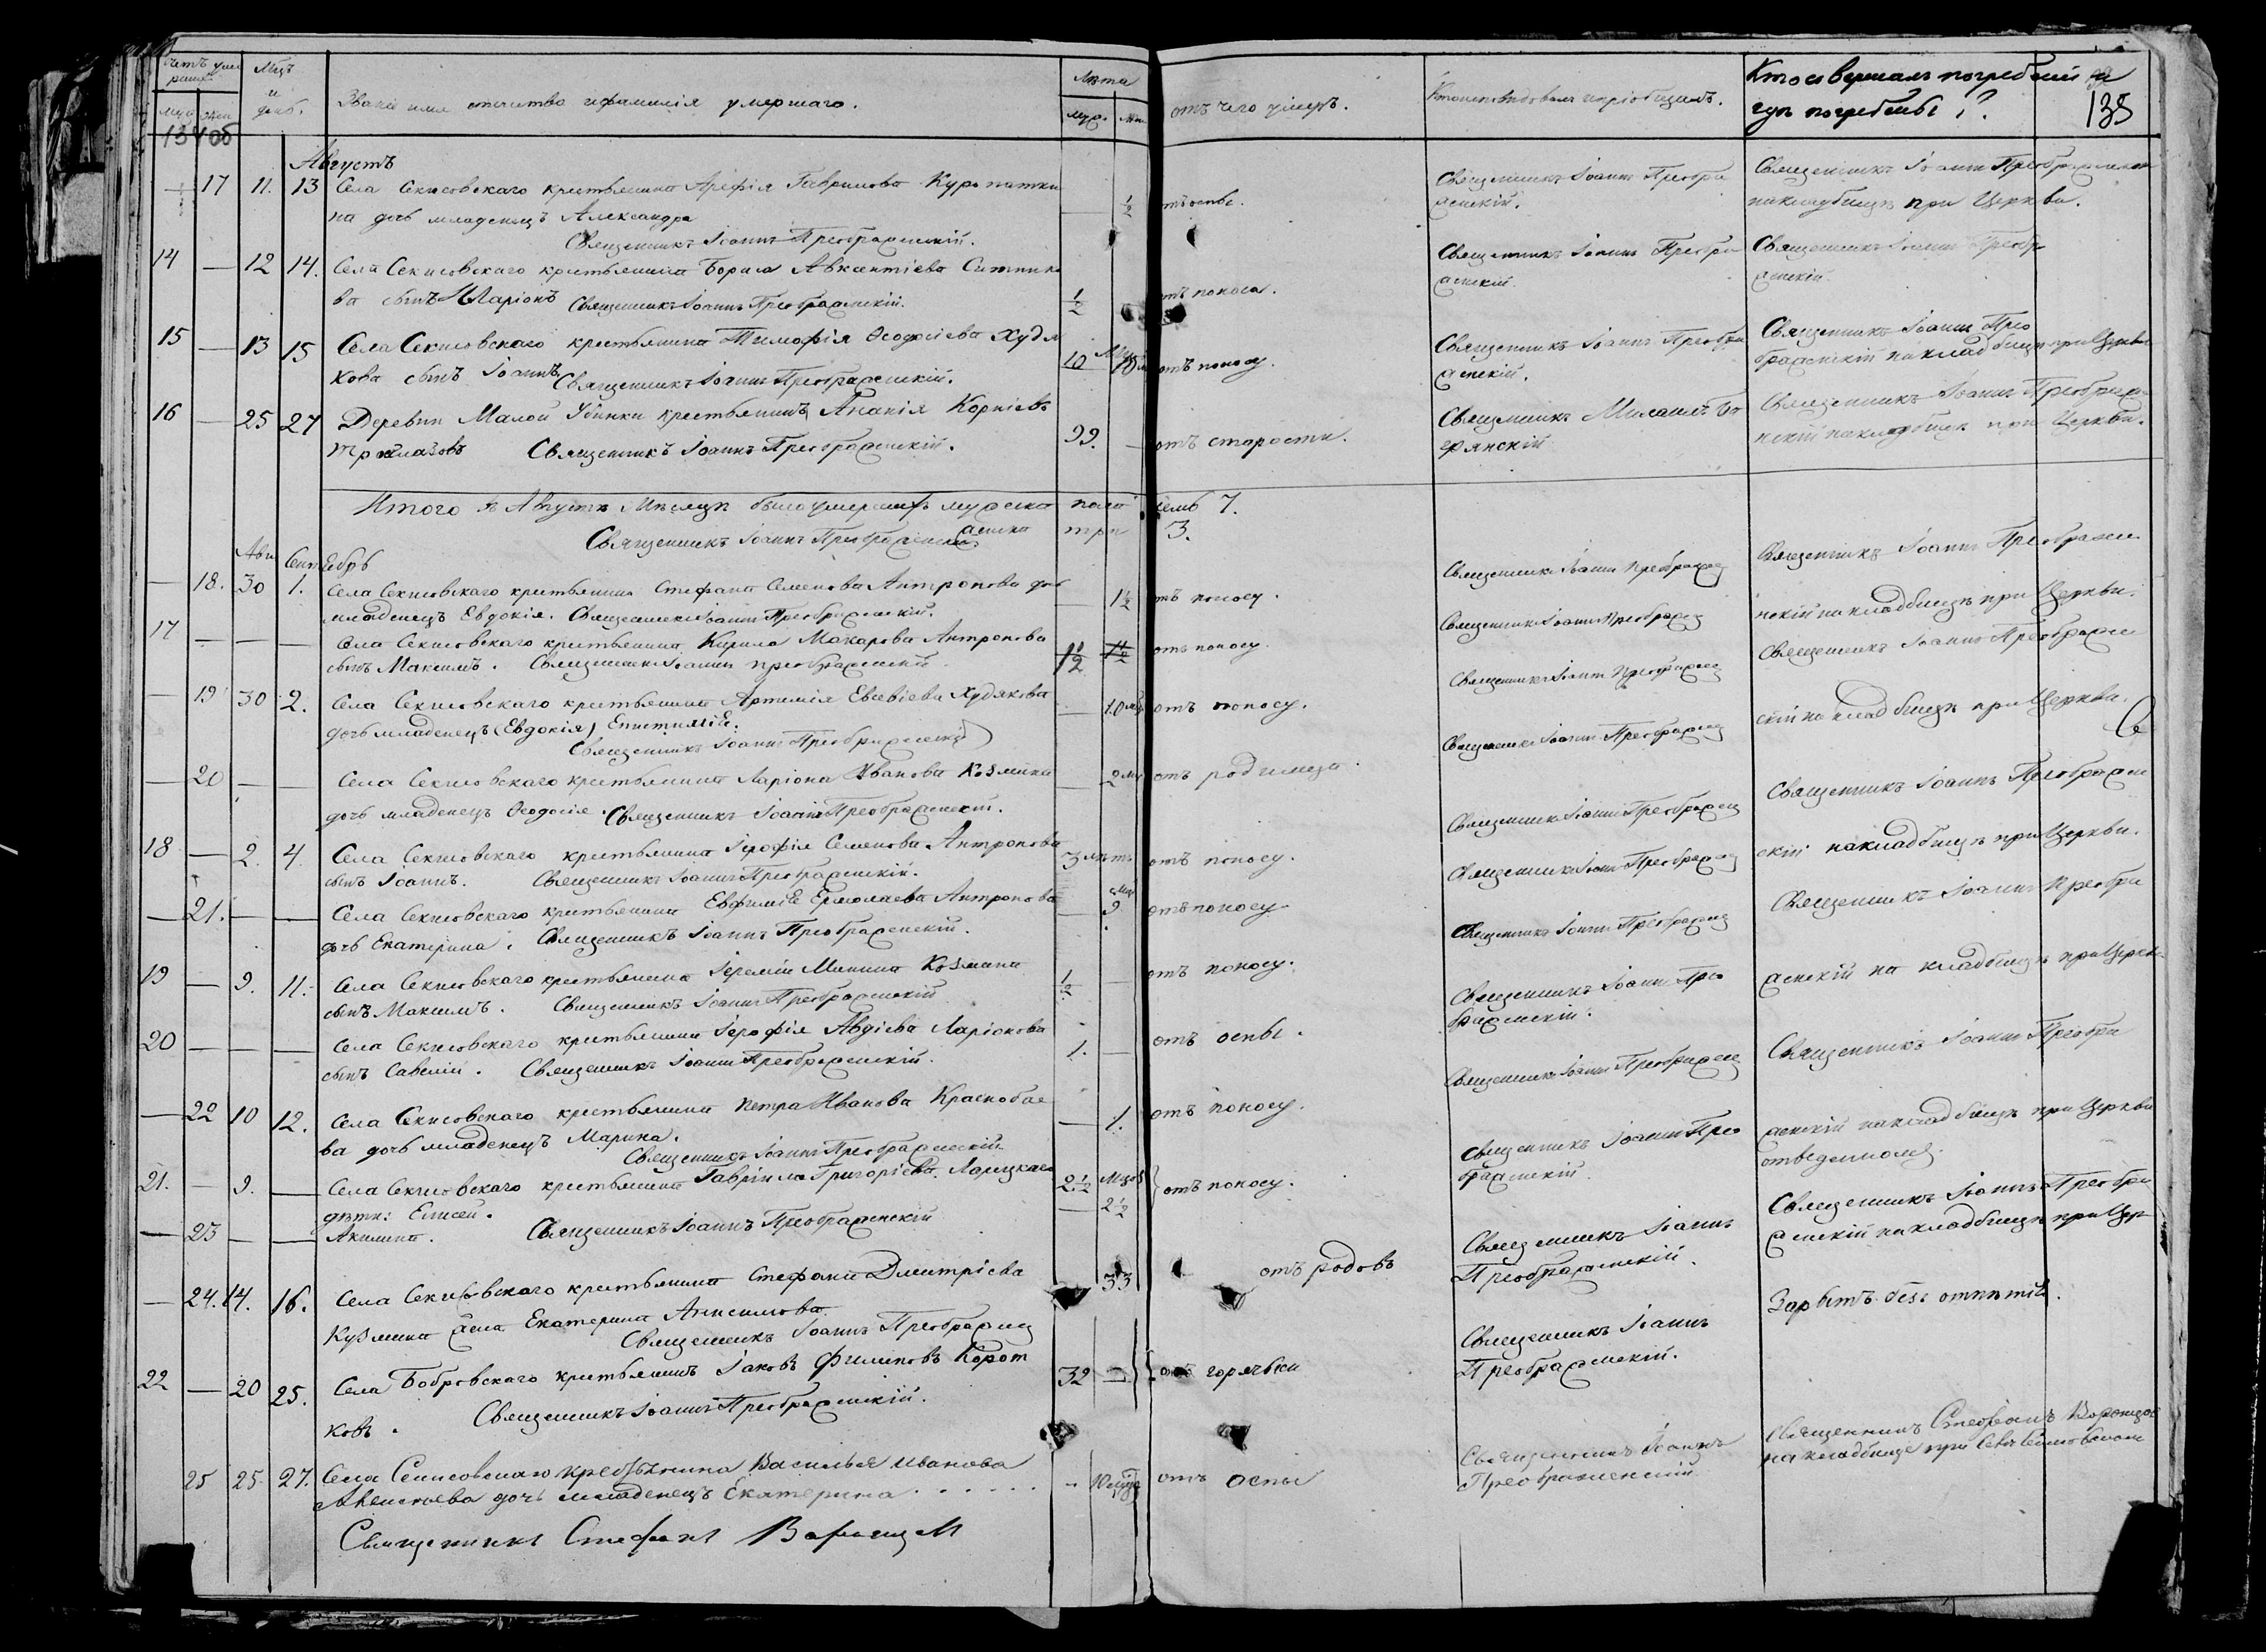 Счетъ умершихъ
Мцъ и день.
Званіе имя отчество и фамилія умершаго.
Лета
отъ чего умеръ.
Кто исповѣдовалъ и пріобщалъ.
Кто совершалъ погребеніе и
гдѣ погребены?
135
муж жен
муж. жен
134об
Августъ
— 17 11. 13 Села Секисовскаго крестьянина Арефія Гаврилова Куропатки
на дочь младенецъ Александра
— 1/2 отъ оспы.
Священникъ Іоаннъ Преображенскій.
Священникъ Іоаннъ Преображенскій.
Священникъ Іоаннъ Преображенскій
на кладбищѣ при Церкви.
14 — 12 14. Села Секисовскаго крестьянина Бориса Авксентіева Ситнико
ва сынъ Иларіонъ Священникъ Іоаннъ Преображенскій.
1/2 отъ поноса.
Священникъ Іоаннъ Преображенскій.
Священникъ Іоаннъ Преображенскій.
15 — 13 15 Села Секисовскаго крестьянина Тимофія Ѳеодосіева Худя
кова сынъ Іоаннъ. Священникъ Іоаннъ Преображенскій.
10 отъ поносу.
Священникъ Іоаннъ Преображенскій.
Священникъ Іоаннъ Прео
браженскій на кладбищѣ при Церкви
16 — 25 27 Деревни Малой Убинки крестьянинъ Ананія Корніевъ
Священникъ Іоаннъ Преображенскій.
99. — отъ старости.
Священникъ Михаилъ
Священникъ Іоаннъ Преображе
нскій на кладбищѣ при Церкви.
Итого въ Августѣ мѣсяцѣ было умершихъ мужеска пола семь 7.
женска три 3.
Священникъ Іоаннъ Преображенскій
Авг. Сентебрь
— 18. 30 1. Села Секисовскаго крестьянина Стефана Семенова Антропова дочь
младенецъ Евдокія. Священникъ Іоаннъ Преображенскій.
— 1 1/2 отъ поносу.
Священникъ Іоаннъ Преображенс
Священникъ Іоаннъ Преображе
нскій на кладбищѣ при Церкви.
17 — — — Села Секисовскаго крестьянина Кирила Макарова Антропова
сынъ Максимъ. Священникъ Іоаннъ Преображенскій
1 1/2 отъ поносу.
Священникъ Іоаннъ Преображенс
Священникъ Іоаннъ Преображен
— 19 30 2. Села Секисовскаго крестьянина Артемія Евсевіева Худякова
дочь младенецъ (Евдокія) Епистимія.
Священникъ Іоаннъ Преображенскій
— 10 мц отъ поносу.
Священникъ Іоаннъ Преображенс
скій на кладбищѣ при Церкви.
— 20 — — Села Секисовскаго крестьянина Ларіона Иванова Козмина
дочь младенецъ Ѳеодосія. Священникъ Іоаннъ Преображенскій.
— 2 мц отъ родимца.
Священникъ Іоаннъ Преображенс
Священникъ Іоаннъ Преображен
18 — 2. 4. Села Секисовскаго крестьянина Іерофія Семенова Антропова
сынъ Іоаннъ. Священникъ Іоаннъ Преображенскій.
3 летъ отъ поносу.
Священникъ Іоаннъ Преображенс
скій на кладбищѣ при Церкви.
— 21. — — Села Секисовскаго крестьянина Евфиміе Ермолаева Антропова
дочь Екатерина. Священникъ Іоаннъ Преображенскій.
— 9 мц отъ поносу.
Священникъ Іоаннъ Преображенс
Священникъ Іоаннъ Преобра
19 — 9. 11. Села Секисовскаго крестьянина Іереміи Минина Козмина
сынъ Максимъ. Священникъ Іоаннъ Преображенскій
1/2 — отъ поносу.
Священникъ Іоаннъ Прео
браженскій.
женскій на кладбищѣ при Церкв
20 — — — Села Секисовскаго крестьянина Іерофія Авдіева Ларіонова
сынъ Савелій. Священникъ Іоаннъ Преображенскій.
1. — отъ оспы.
Священникъ Іоаннъ Преображенс
Священникъ Іоаннъ Преобра
— 22 10 12. Села Секисовскаго крестьянина Петра Иванова Краснобае
ва дочь младенецъ Марина.
Священникъ Іоаннъ Преображенскій
— 1. отъ поносу.
Священникъ Іоаннъ Прео
браженскій.
женскій на кладбищѣ при Церкви
отведенномъ.
21. — 9. — Села Секисовскаго крестьянина Гавріила Григоріева
дѣти: Елисей.
— 23 — — Акилина. Священникъ Іоаннъ Преображенскій
2 1/2 мцов
— 2 1/2 отъ поносу.
Священникъ Іоаннъ
Преображенскій.
Священникъ Іоаннъ Преобра
женскій на кладбищѣ при Цер
— 24. 14. 16. Села Секисовскаго крестьянина Стефана Дмитріева
Кузмина жена Екатерина Анисимова
Священникъ Іоаннъ Преображенс
33 отъ родовъ
Священникъ Іоаннъ
Преображенскій.
Зарытъ безъ отпѣтія.
22 — 20 25. Села Бобровскаго крестьянинъ Іаковъ Филиповъ Корот
ковъ. Священникъ Іоаннъ Преображенскій.
32 — отъ горячьки
25 25. 27. Села Секисовскаго крестьянина Василья Иванова
дочь младенецъ Екатерина . . . . . .
- 10 отъ оспы
Священникъ Іоаннъ
Преображенскій
Священникъ Стефанъ Воронцов
на кладбищѣ при Селѣ Секисовскомъ
Священникъ Стефанъ